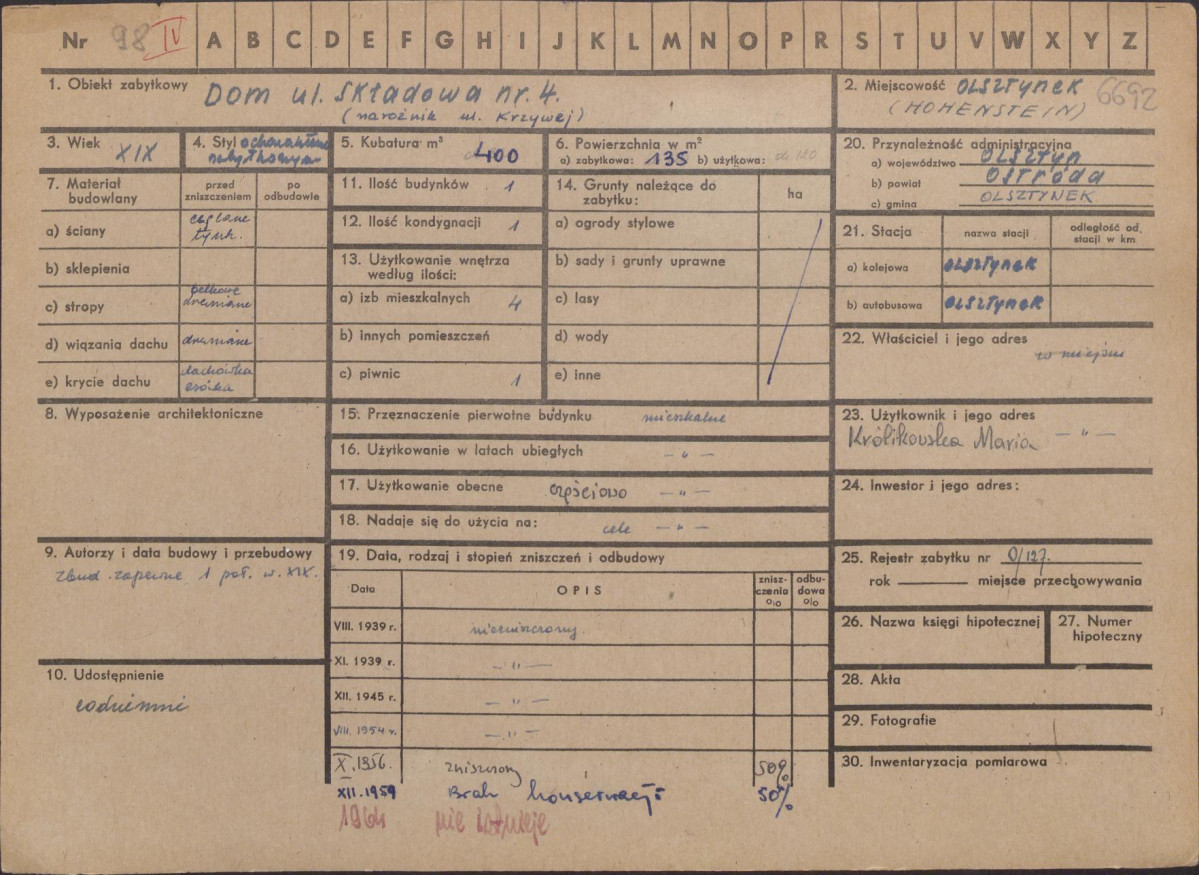 Nr 98 IV A B C D E F G H I J K L M N O P R S T U V W X Y Z
1. Obiekt zabytkowy Dom ul. Składowa nr. 4.
(narożnik ul. Krzywej)
2. Miejscowość OLSZTYNEK 6692
(HOHENSTEIN)
3. Wiek XIX
4. Styl o charakterze
zabytkowym
5. Kubatura m³ 400
6. Powierzchnia w m²
a) zabytkowa: 135 b) użytkowa: 120
7. Materiał budowlany
przed zniszczeniem
po odbudowie
a) ściany ceglane
tynk.
b) sklepienia
c) stropy belkowe
drewniane
d) wiązania dachu drewniane
e) krycie dachu dachówka
esówka
8. Wyposażenie architektoniczne
9. Autorzy i data budowy i przebudowy
Zbud. zapewne 1 poł. w. XIX.
10. Udostępnienie
codziennie
11. Ilość budynków 1
12. Ilość kondygnacji 1
13. Użytkowanie wnętrza
według ilości:
a) izb mieszkalnych 4
b) innych pomieszczeń
c) piwnic 1
14. Grunty należące do
zabytku:
ha
a) ogrody stylowe
b) sady i grunty uprawne
c) lasy
d) wody
e) inne
15. Przęznaczenie pierwotne budynku mieszkalne
16. Użytkowanie w latach ubiegłych — „ —
17. Użytkowanie obecne częściowo — „ —
18. Nadaje się do użycia na: cele — „ —
19. Data, rodzaj i stopień zniszczeń i odbudowy
Data
OPIS
znisz-
czenia
%
odbu-
dowa
%
VIII. 1939 r. niezniszczony.
XI. 1939 r. — „ —
XII. 1945 r. — „ —
VIII. 1954 r. — „ —
X. 1956. zniszczony 50%
XII. 1959 Brak konserwacji 50%
1964 nie istnieje
20. Przynależność administracyjna
a) województwo OLSZTYN
b) powiat OSTRÓDA
c) gmina OLSZTYNEK
21. Stacja
nazwa stacji
odległość od.
stacji w km
a) kolejowa OLSZTYNEK
b) autobusowa OLSZTYNEK
22. Właściciel i jego adres
w miejscu
23. Użytkownik i jego adres
Królikowska Maria — „ —
24. Inwestor i jego adres:
25. Rejestr zabytku nr O/127.
rok miejsce przechowywania
26. Nazwa księgi hipotecznej
27. Numer
hipoteczny
28. Akta
29. Fotografie
30. Inwentaryzacja pomiarowa